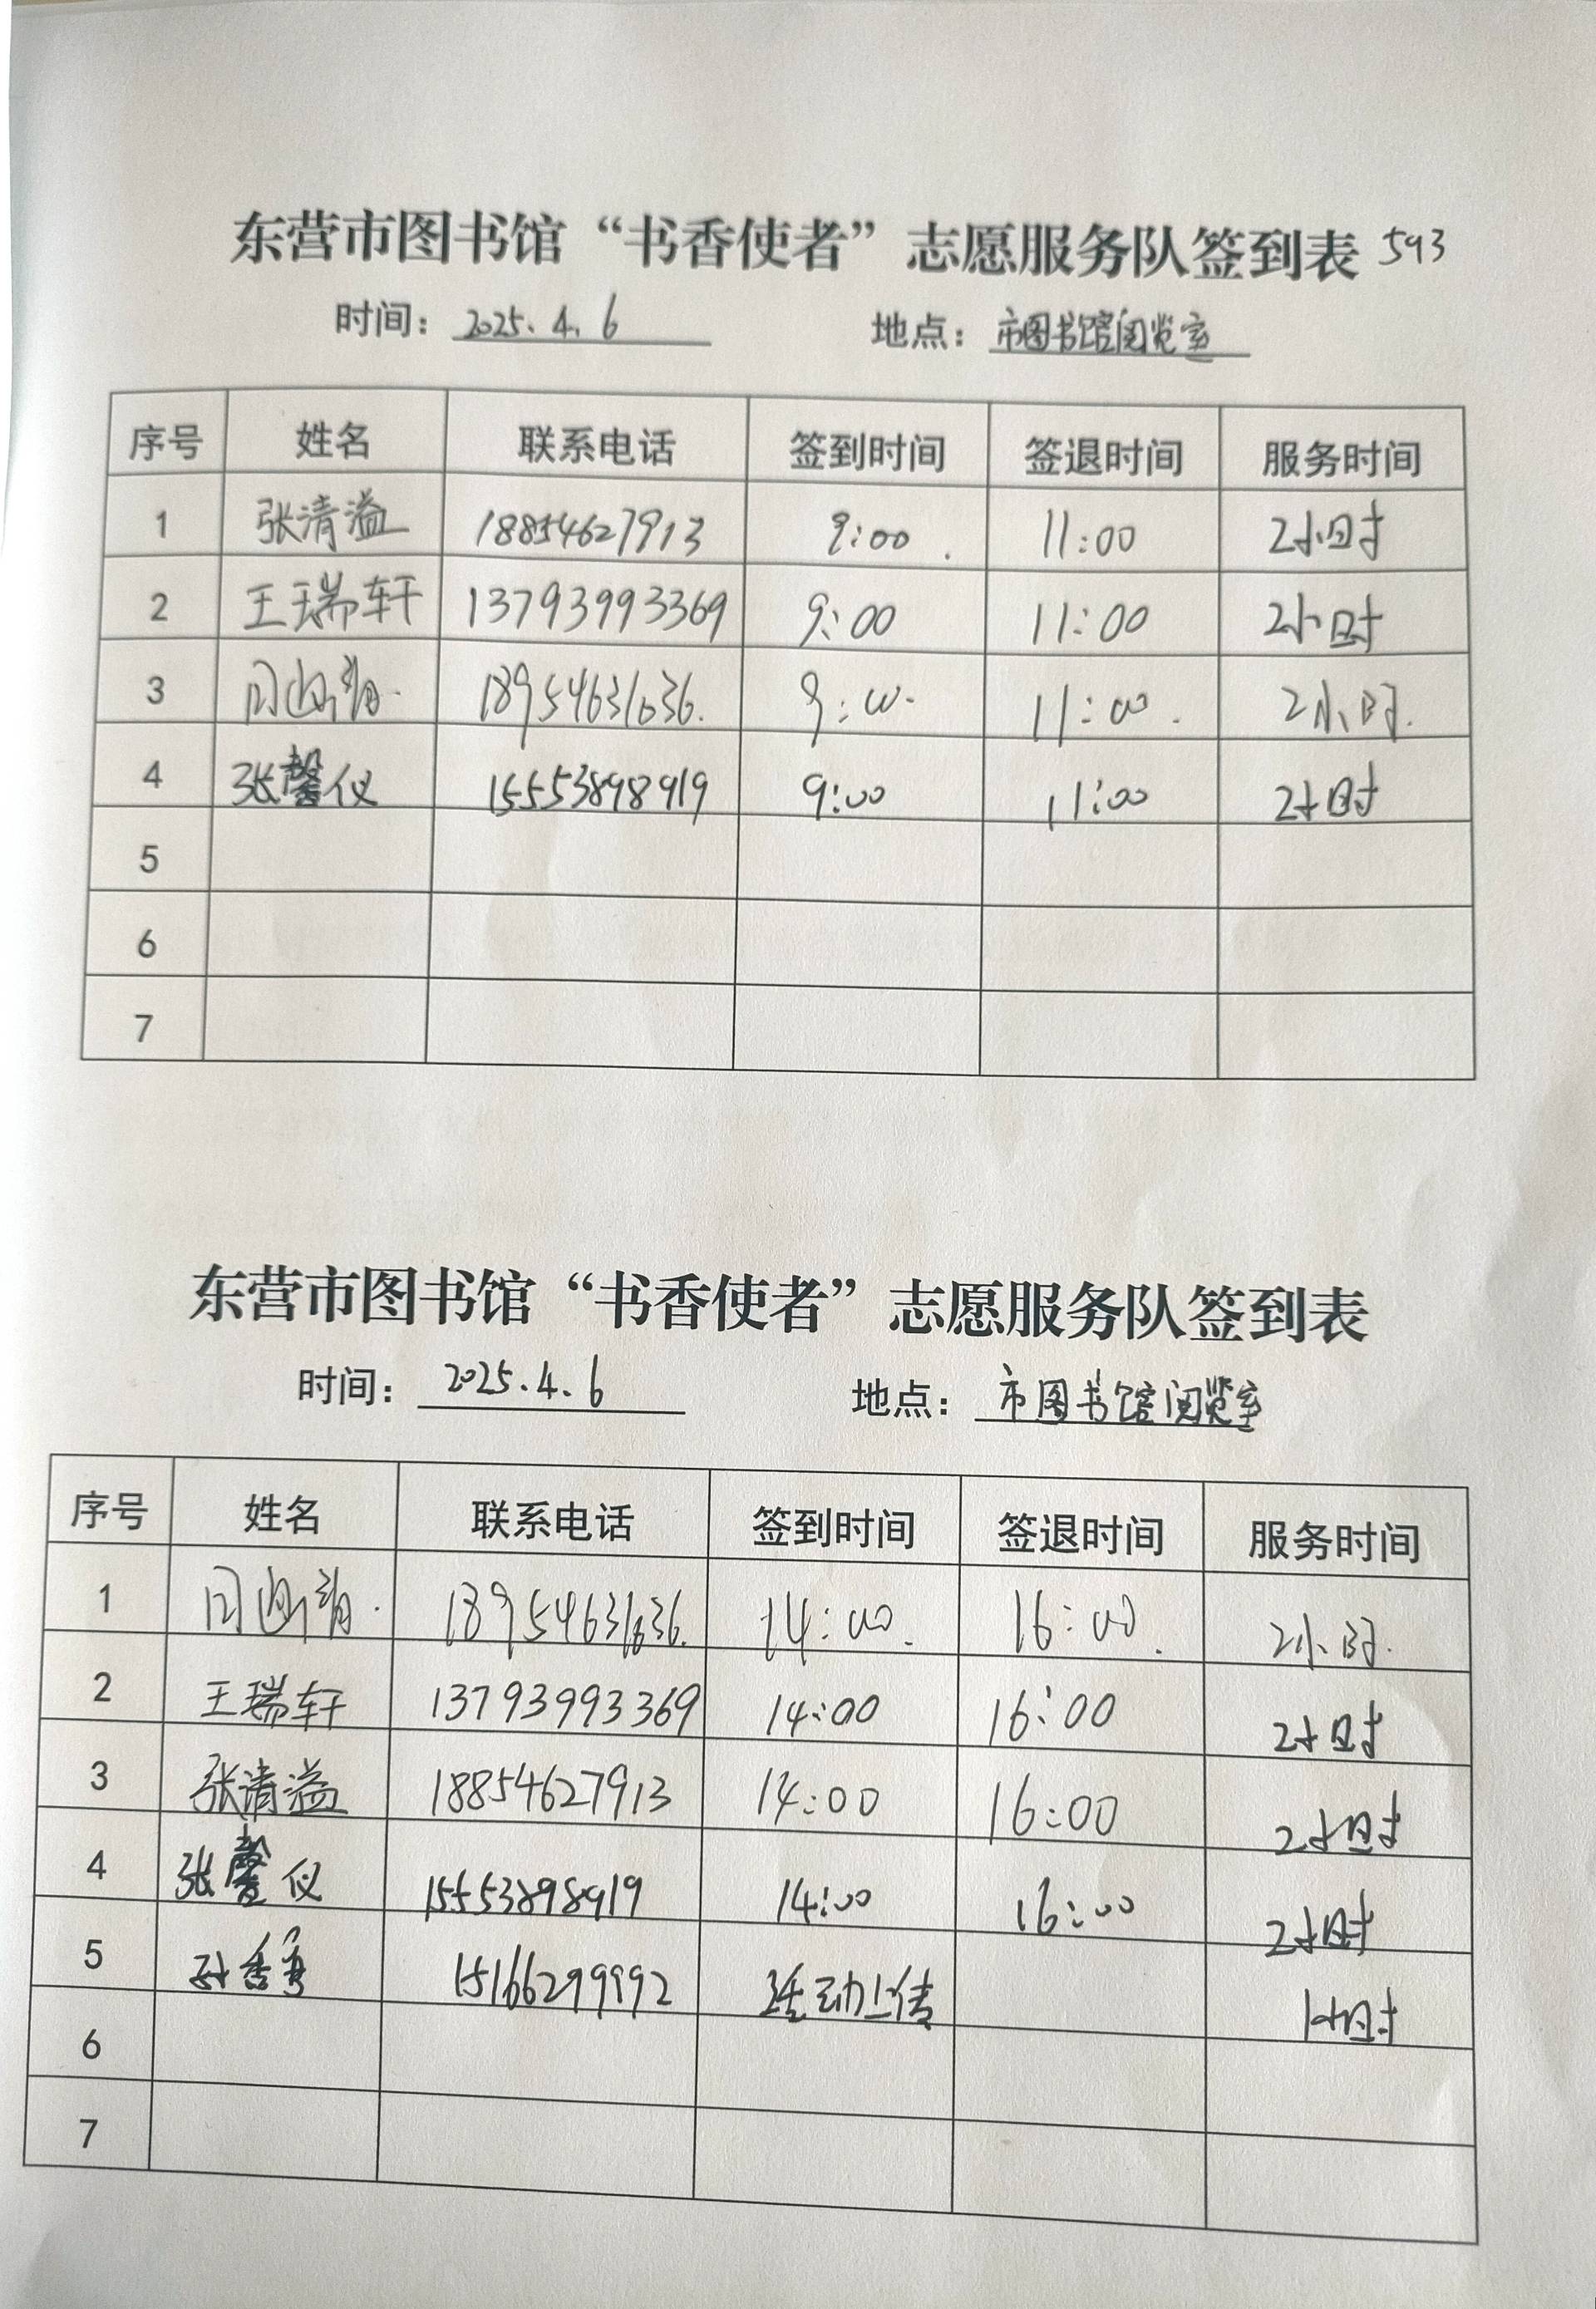 东营市图书馆“书香使者”志愿服务队签到表 593
时间： 2025.4.6 地点： 市图书馆阅览室
序号 姓名 联系电话 签到时间 签退时间 服务时间
1 张清溢 18854627913 9:00 11:00 2小时
2 王瑞轩 13793993369 9:00 11:00 2小时
3 18954631636 9:00 11:00 2小时
4 张馨仪 15553898919 9:00 11:00 2小时
5
6
7
东营市图书馆“书香使者”志愿服务队签到表
时间： 2025.4.6 地点： 市图书馆阅览室
序号 姓名 联系电话 签到时间 签退时间 服务时间
1 18954631636 14:00 16:00 2小时
2 王瑞轩 13793993369 14:00 16:00 2小时
3 张清溢 18854627913 14:00 16:00 2小时
4 张馨仪 15553898919 14:00 16:00 2小时
5 15166299992 活动上传 1小时
6
7